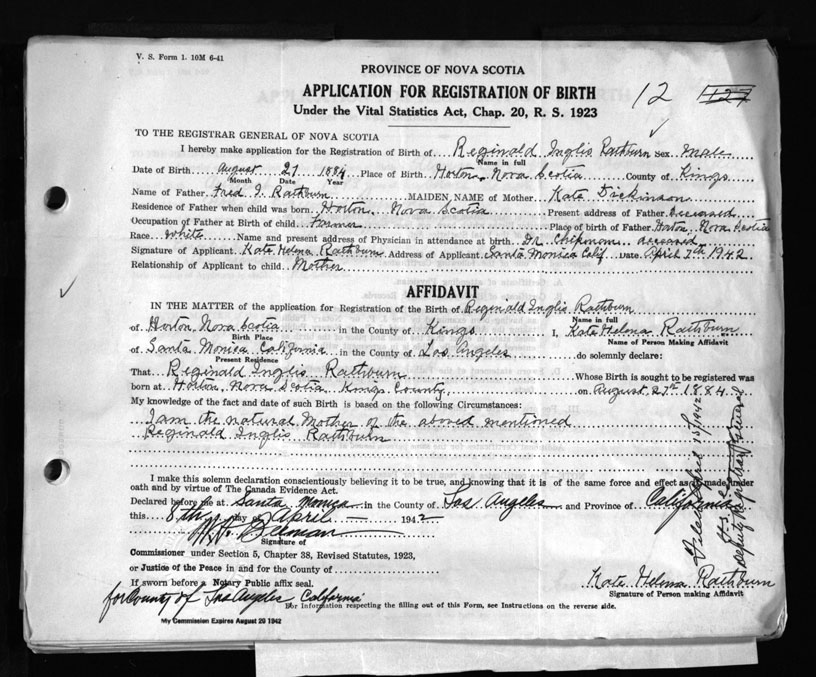 V. S. Form 1. 10M 6-41
PROVINCE OF NOVA SCOTIA
APPLICATION FOR REGISTRATION OF BIRTH
12 127
Under the Vital Statistics Act, Chap. 20, R. S. 1923
TO THE REGISTRAR GENERAL OF NOVA SCOTIA
I hereby make application for the Registration of Birth of Reginald Inglis Rathburn Sex Male
Name in full
Date of Birth August 27 1884 Place of Birth Horton, Nova Scotia County of Kings
Month Date Year
Name of Father Fred I. Rathburn MAIDEN NAME of Mother Kate Dickinson
Residence of Father when child was born Horton, Nova Scotia Present address of Father Deceased
Occupation of Father at Birth of child Farmer Place of birth of Father Horton, Nova Scotia
Race White Name and present address of Physician in attendance at birth Dr. Chipman deceased
Signature of Applicant Kate Helena Rathburn Address of Applicant Santa Monica Calif Date April 7th 1942
Relationship of Applicant to child Mother
AFFIDAVIT
IN THE MATTER of the application for Registration of the Birth of Reginald Inglis Rathburn
Name in full
of Horton Nova Scotia in the County of Kings I, Kate Helena Rathburn
Birth Place Name of Person Making Affidavit
of Santa Monica California in the County of Los Angeles do solemnly declare:
Present Residence
That Reginald Inglis Rathburn Whose Birth is sought to be registered was
born at Horton, Nova Scotia Kings County, on August 27th 1884
My knowledge of the fact and date of such Birth is based on the following Circumstances:
I am the natural Mother of the above mentioned
Reginald Inglis Rathburn
I make this solemn declaration conscientiously believing it to be true, and knowing that it is of the same force and effect as if made under
oath and by virtue of The Canada Evidence Act.
Declared before me at Santa Monica in the County of Los Angeles and Province of California
this 8th day of April 1942
Signature of
Commissioner under Section 5, Chapter 38, Revised Statutes, 1923,
or Justice of the Peace in and for the County of
If sworn before a Notary Public affix seal.
Kate Helena Rathburn
Signature of Person making Affidavit
for County of Los Angeles California
For Information respecting the filling out of this Form, see Instructions on the reverse side.
My Commission Expires August 20 1942
Filed April 15/1942
Deputy Registrar General